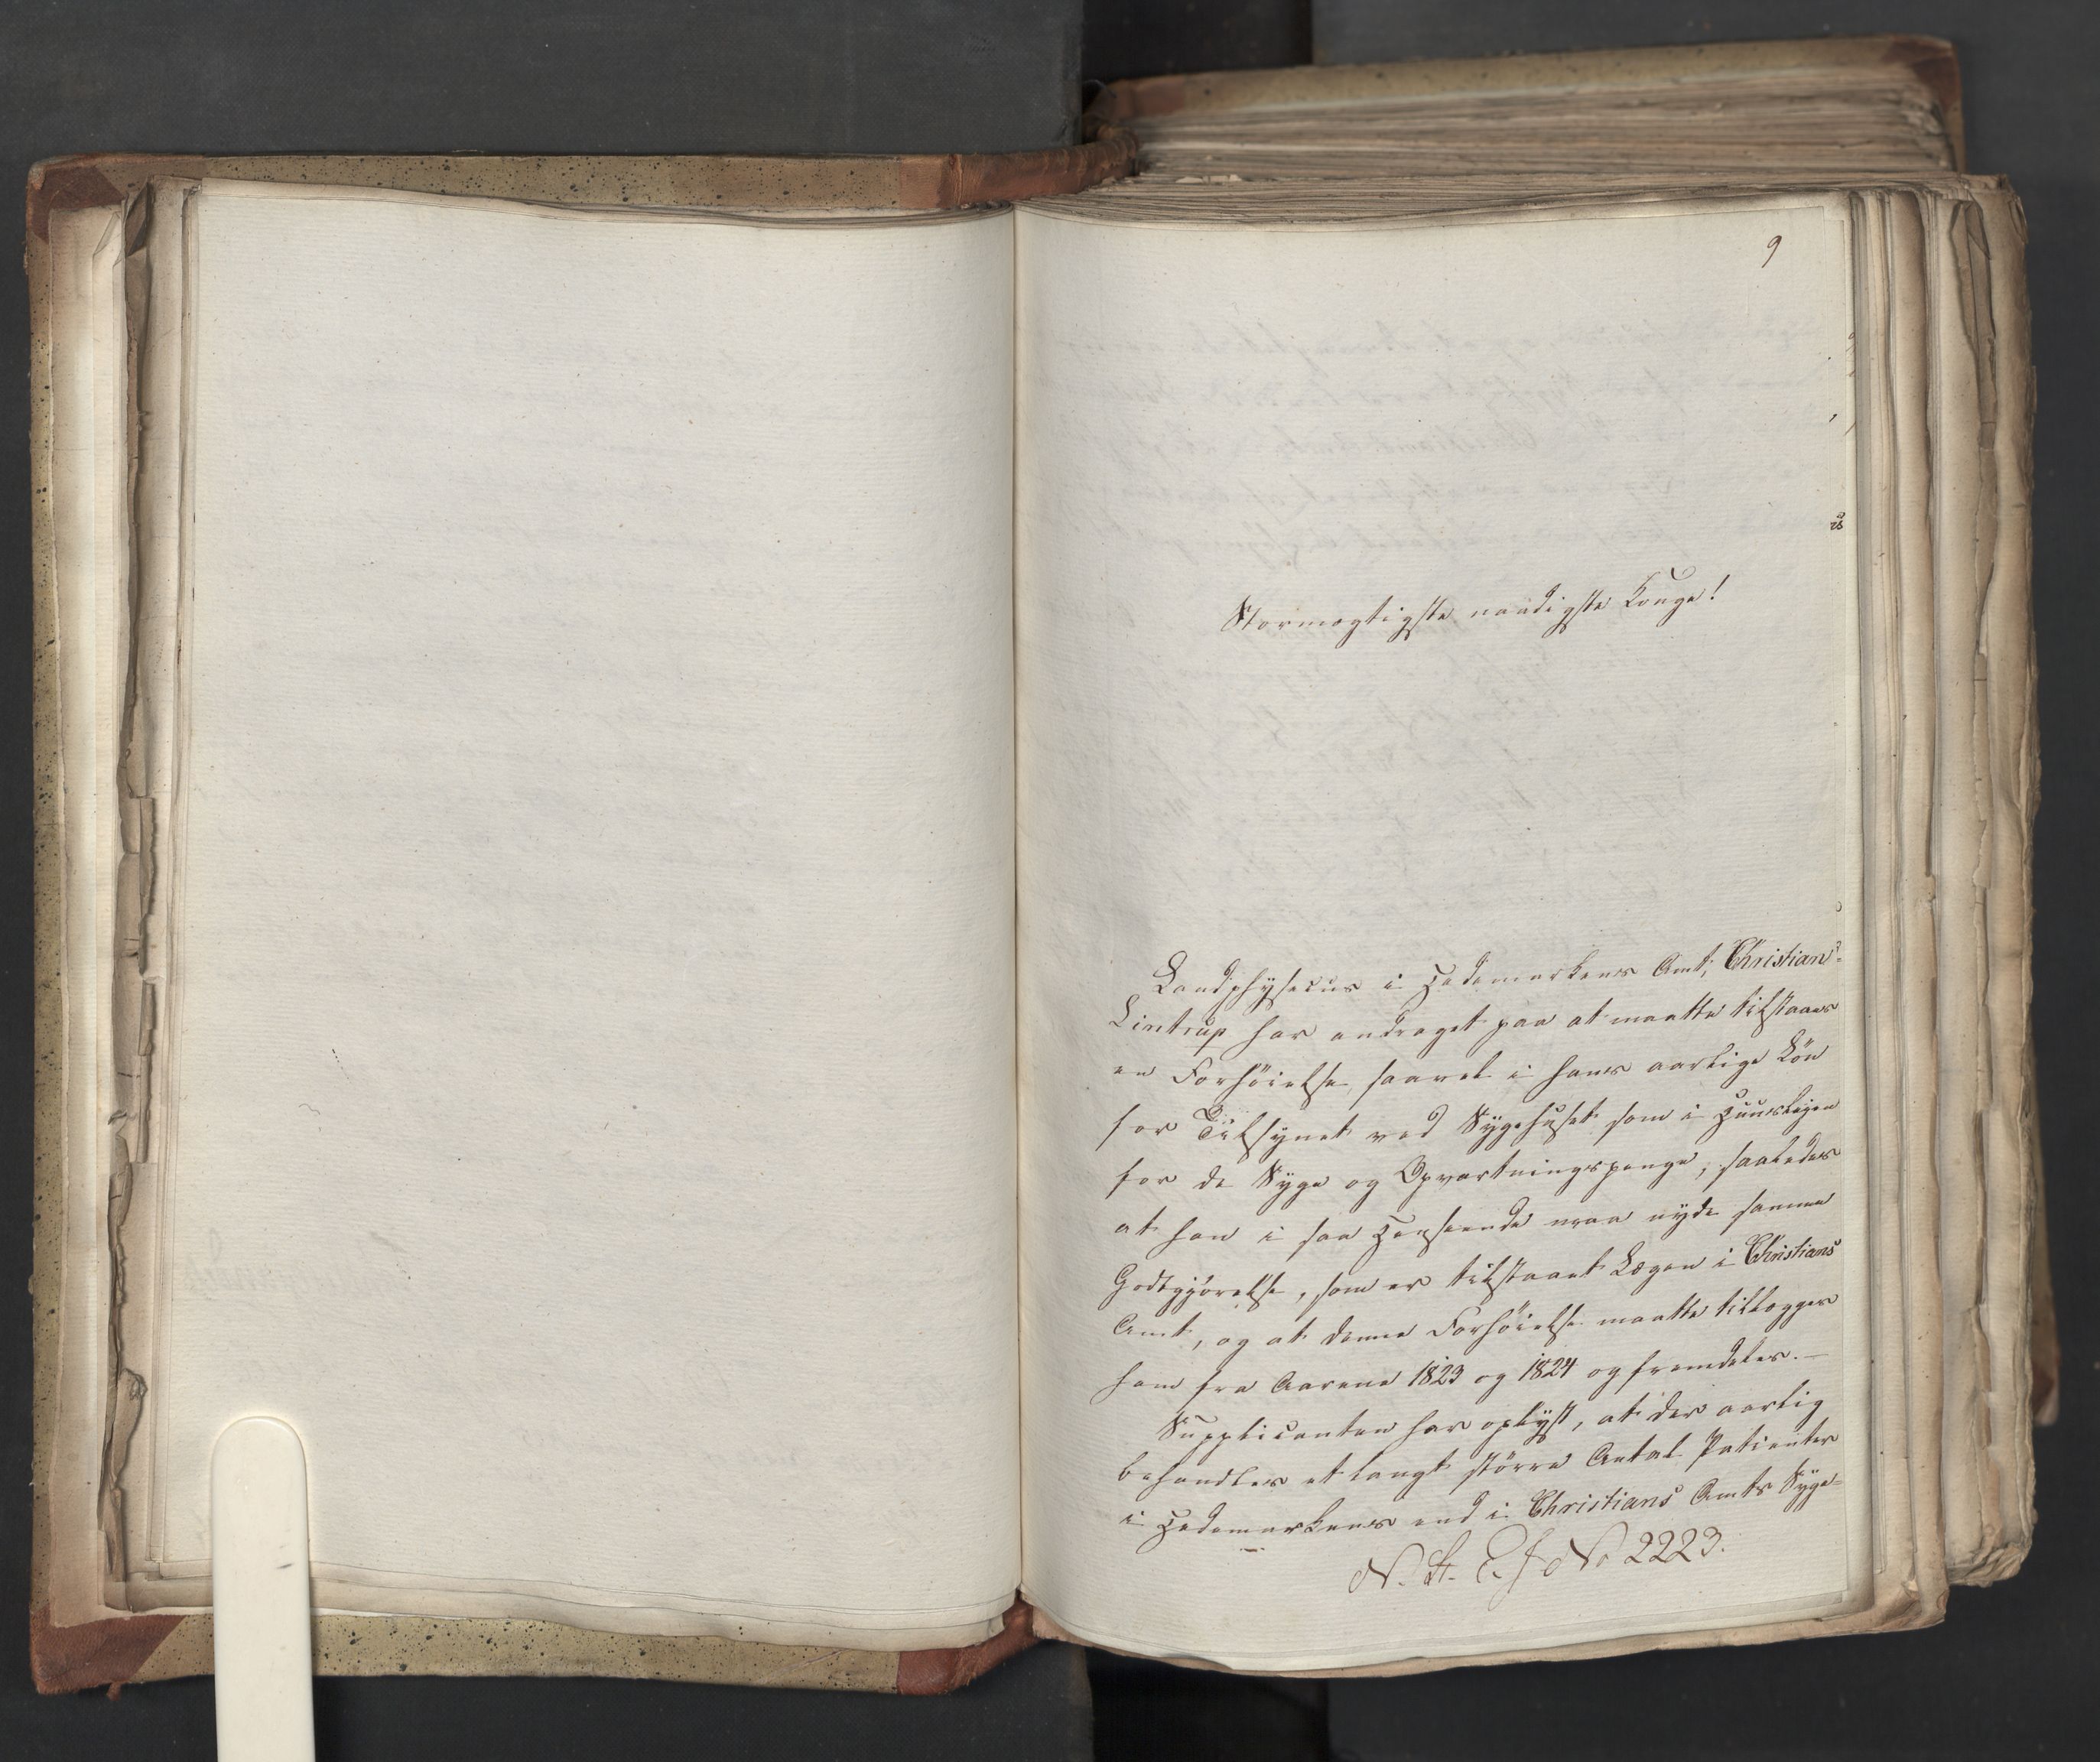 9
Stormægtigste naadigste Konge!
Landphysicus i Hedemarkens Amt, Christian
Lintrup har andraget paa at maatte tilstaaes
en Forhöielse saavel i hans aarlige Lön
for Tilsynet ved Sygehuset som i Huusleien
for de Syge og Opvartningspenge, saaledes
at han i saa Henseende maa nyde samme
Godtgjörelse, som er tilstaaet Lægen i Christians
Amt, og at denne Forhöielse maatte tillægges
ham fra Aarene 1823 og 1824 og fremdeles. —
Supplicanten har oplyst, at der aarlig
behandles et langt större Antal Patienter
i Hedemarkens end i Christians Amts Syge=
N. St. E. J No 2223.